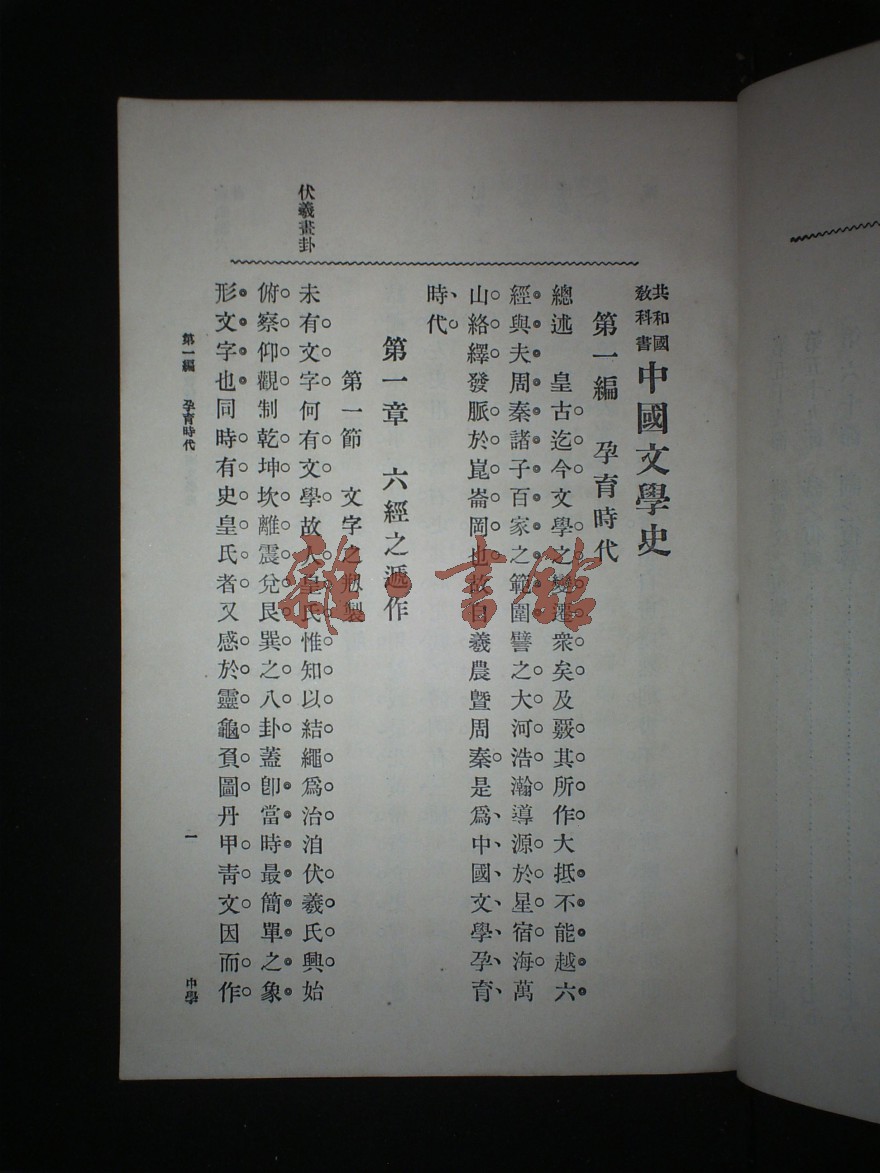 共和國
敎科書
中國文學史
第一編　孕育時代
總述　皇古迄今文學之變遷衆矣及覈其所作大抵不能越六
經與夫周秦諸子百家之範圍譬之大河浩瀚導源於星宿海萬
山絡繹發脈於崑崙岡也故自羲農曁周秦是爲中國文學孕育
時代
第一章　六經之遞作
第一節　文字之刱製
伏羲畫卦
未有文字何有文學故人皇氏惟知以結繩爲治洎伏羲氏興始
俯察仰觀制乾坤坎離震兌艮巽之八卦蓋卽當時最簡單之象
形文字也同時有史皇氏者又感於靈龜負圖丹甲靑文因而作
第一編　孕育時代
一
中學
雜·書館